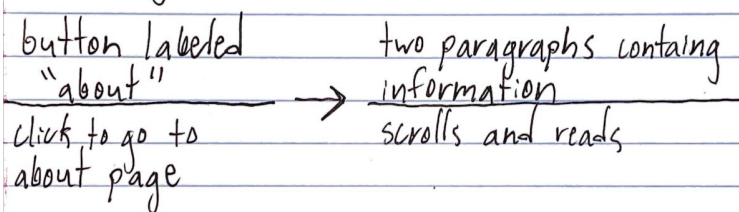 button labeled
"about"
click to go to
about page
→
two paragraphs containg
information
scrolls and reads